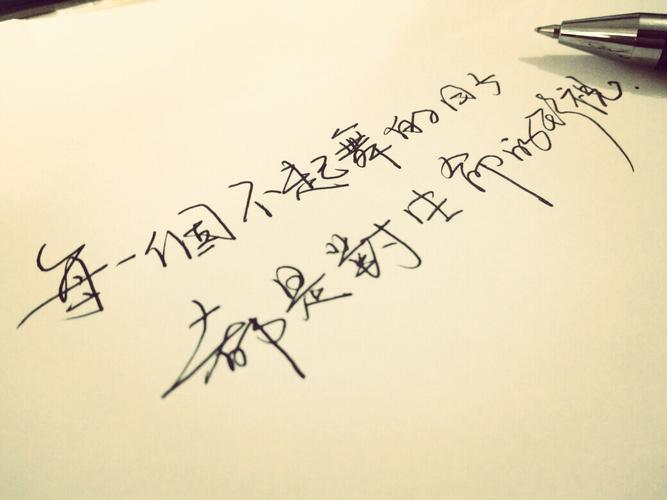 每一個不起舞的日子
都是對生命的視.